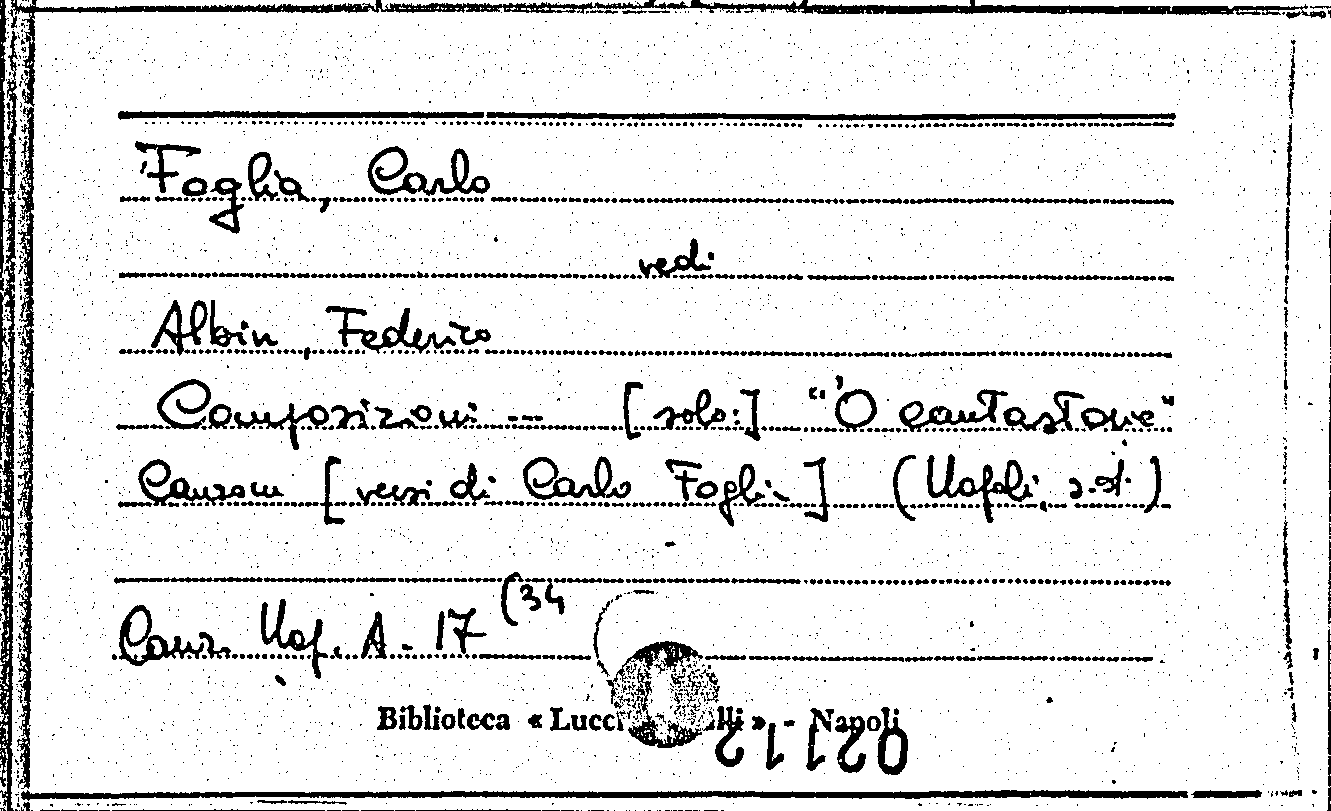 Foglia, Carlo
vedi
Albin, Federico
Composizioni --- [solo:] "'O cantastorie"
Canzoni [versi di Carlo Foglia] (Napoli, s.d.)
Canz. Nap. A - 17 (34
Biblioteca « Lucch lli » - Napoli
02112